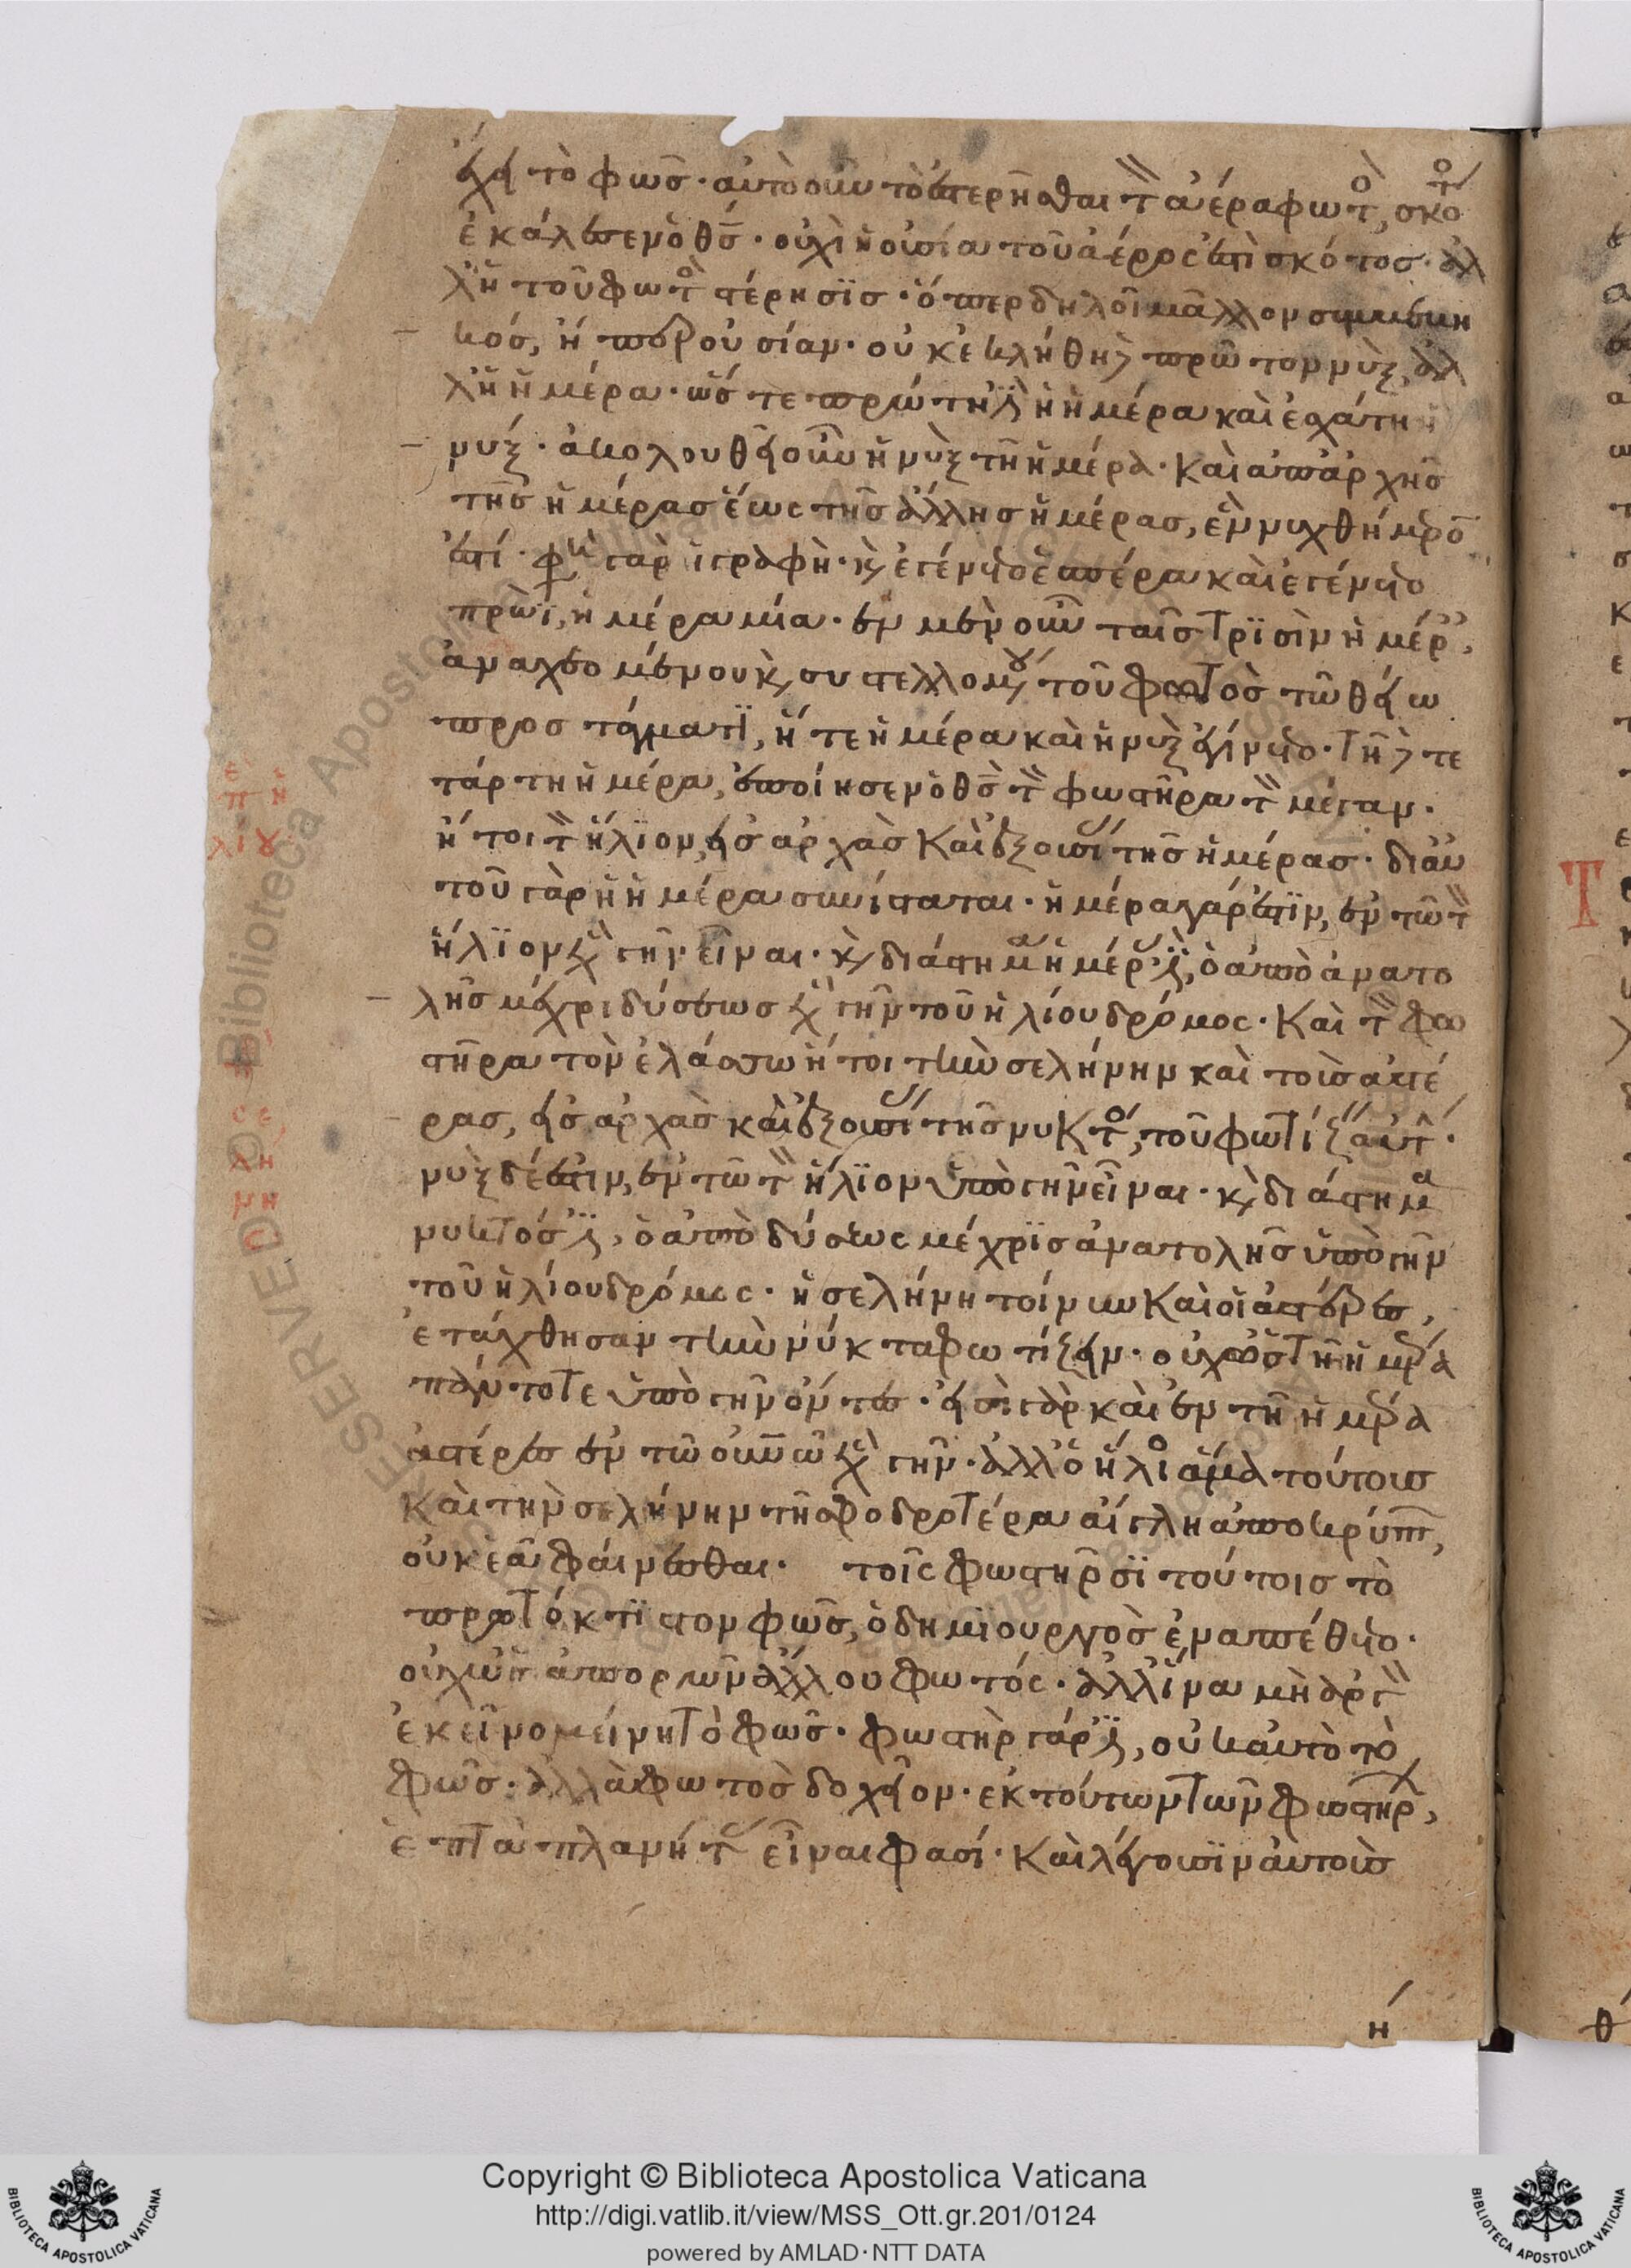 ἔχει τὸ φῶς· αὐτὸ οὖν τὸ ἐστερῆσθαι τὸν ἀέρα φωτὸς, σκότος
ἐκάλεσεν ὁ θς· οὐχὶ ἡ οὐσία τοῦ ἀέρος ἐστὶ σκότος· ἀλ
λ᾽ ἡ τοῦ φωτὸς στέρησις· ὅπερ δηλοῖ μᾶλλον συμβεβη
κός, ἢ περ οὐσίαν· οὐκ ἐκλήθη δὲ πρῶτον νὺξ, ἀλ
λ᾽ ἡ ἡμέρα· ὥστε πρώτη ἐστὶν ἡ ἡμέρα καὶ ἐσχάτη ἡ
νύξ· ἀκολουθεῖ οὖν ἡ νὺξ τῇ ἡμέρα· καὶ ἀπ᾽ ἀρχῆς
τῆς ἡμέρας ἕως τῆς ἄλλης ἡμέρας, ἓν νυχθήμερόν
ἐστί· φησὶ γὰρ ἡ γραφὴ· καὶ ἐγένετο ἑσπέρα καὶ ἐγένετο
πρωῒ, ἡμέρα μία· ἐν μὲν οὖν ταῖς τρισὶν ἡμέραις,
ἀναχεομένου καὶ συστελλομένου τοῦ φωτὸς τῷ θείω
προστάγματι, ἥ τε ἡμέρα καὶ ἡ νὺξ ἐγίνετο· τῇ δὲ τε
τάρτη ἡμέρα, ἐποίησεν ὁ θς τὸν φωστῆρα τὸν μέγαν·
ἤτοι τὸν ἥλιον, εἰς ἀρχὰς καὶ ἐξουσίας τῆς ἡμέρας· δι᾽ αὐ
τοῦ γὰρ ἡ ἡμέρα συνίσταται· ἡμέρα γάρ ἐστιν, ἐν τῷ τὸν
ἥλιον ὑπὲρ γῆν εἶναι· καὶ διάστημα ἡμέρας ἐστὶν, ὁ ἀπὸ ἀνατο
λῆς μέχρι δύσεως ὑπὲρ γῆν τοῦ ἡλίου δρόμος· καὶ τὸν φω
στῆρα τὸν ἐλάσσω ἤτοι τὴν σελήνην καὶ τοὺς ἀστέ
ρας, εἰς ἀρχὰς καὶ ἐξουσίας τῆς νυκτός, τοῦ φωτίζειν αὐτήν·
νὺξ δέ ἐστιν, ἐν τῷ τὸν ἥλιον ὑπὸ γῆν εἶναι· καὶ διάστημα
νυκτός ἐστιν, ὁ ἀπὸ δύσεως μέχρις ἀνατολῆς ὑπὸ γῆν
τοῦ ἡλίου δρόμος· ἡ σελήνη τοίνυν καὶ οἱ ἀστέρες,
ἐτάχθησαν τὴν νύκτα φωτίζειν· οὐχ ὡς τῇ ἡμέρα
πάντοτε ὑπὸ γῆν ὄντες· εἰσὶ γὰρ καὶ ἐν τῇ ἡμέρα
ἀστέρες ἐν τῷ οὐνῷ ὑπὲρ γῆν· ἀλλ᾽ ὁ ἥλιος ἅμα τούτοις
καὶ τὴν σελήνην τῇ σφοδροτέρα αἴγλη ἀποκρύπτων,
οὐκ ἐᾷ φαίνεσθαι· τοῖς φωστῆρσι τούτοις τὸ
πρωτόκτιστον φῶς, ὁ δημιουργὸς ἐναπέθετο·
οὐχ ὡς ἀπορῶν ἄλλου φωτός· ἀλλ᾽ ἵνα μὴ ἀργὸν
ἐκεῖνο μείνη τὸ φῶς· φωστὴρ γάρ ἐστιν, οὐκ αὐτὸ τὸ
φῶς· ἀλλὰ φωτὸς δοχεῖον· ἐκ τούτων τῶν φωστήρων,
ἑπτὰ πλανήτας εἶναι φασί· καὶ λέγουσιν αὐτοὺς
ή
Copyright © Biblioteca Apostolica Vaticana
http://digi.vatlib.it/view/MSS_Ott.gr.201/0124
powered by AMLAD·NTT DATA